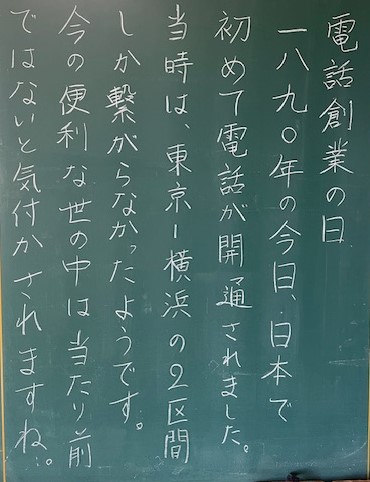 電話創業の日
一八九〇年の今日、日本で
初めて電話が開通されました。
当時は、東京ー横浜の2区間
しか繋がらなかったようです。
今の便利な世の中は当たり前
ではないと気付かされますね。